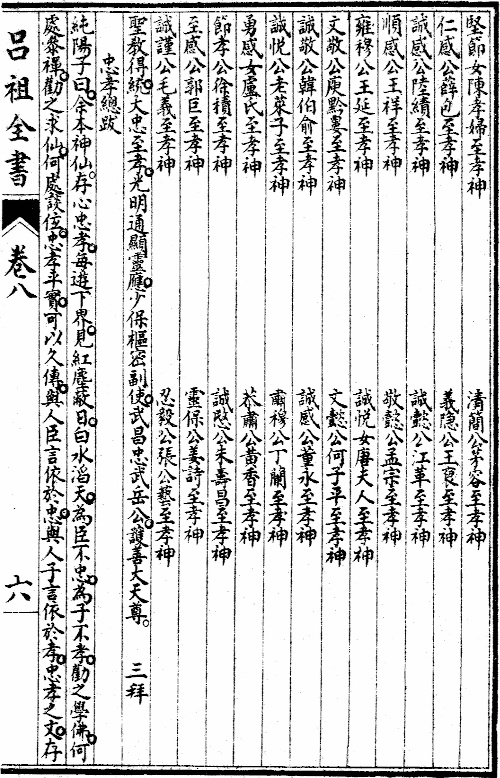 堅節女陳孝婦至孝神　清簡公茅容至孝神
仁感公薛包至孝神　義隱公王裒至孝神
誠感公陸績至孝神　誠懿公江革至孝神
順感公王祥至孝神　敬懿公孟宗至孝神
雍穆公王延至孝神　誠悅女唐夫人至孝神
文敬公庾黔婁至孝神　文懿公何子平至孝神
誠敬公韓伯俞至孝神　誠感公董永至孝神
誠悅公老萊子至孝神　肅穆公丁蘭至孝神
勇感女盧氏至孝神　恭肅公黃香至孝神
節孝公徐積至孝神　誠愍公朱壽昌至孝神
至感公郭巨至孝神　靈保公姜詩至孝神
誠謹公毛義至孝神　忍毅公張公藝至孝神
聖教得統。大忠至孝。光明通顯靈應。少保樞密副使。武昌忠武岳公。護善大天尊。　三拜
忠孝總跋
純陽子曰。余本神仙。存心忠孝。每遊下界。見紅塵蔽日。白水滔天。為臣不忠。為子不孝。勸之學佛。何
處參禪。勸之求仙。何處談位。忠孝平實。可以久傳。與人臣言依於忠。與人子言依於孝。忠孝之文。存
呂祖全書　卷八　六